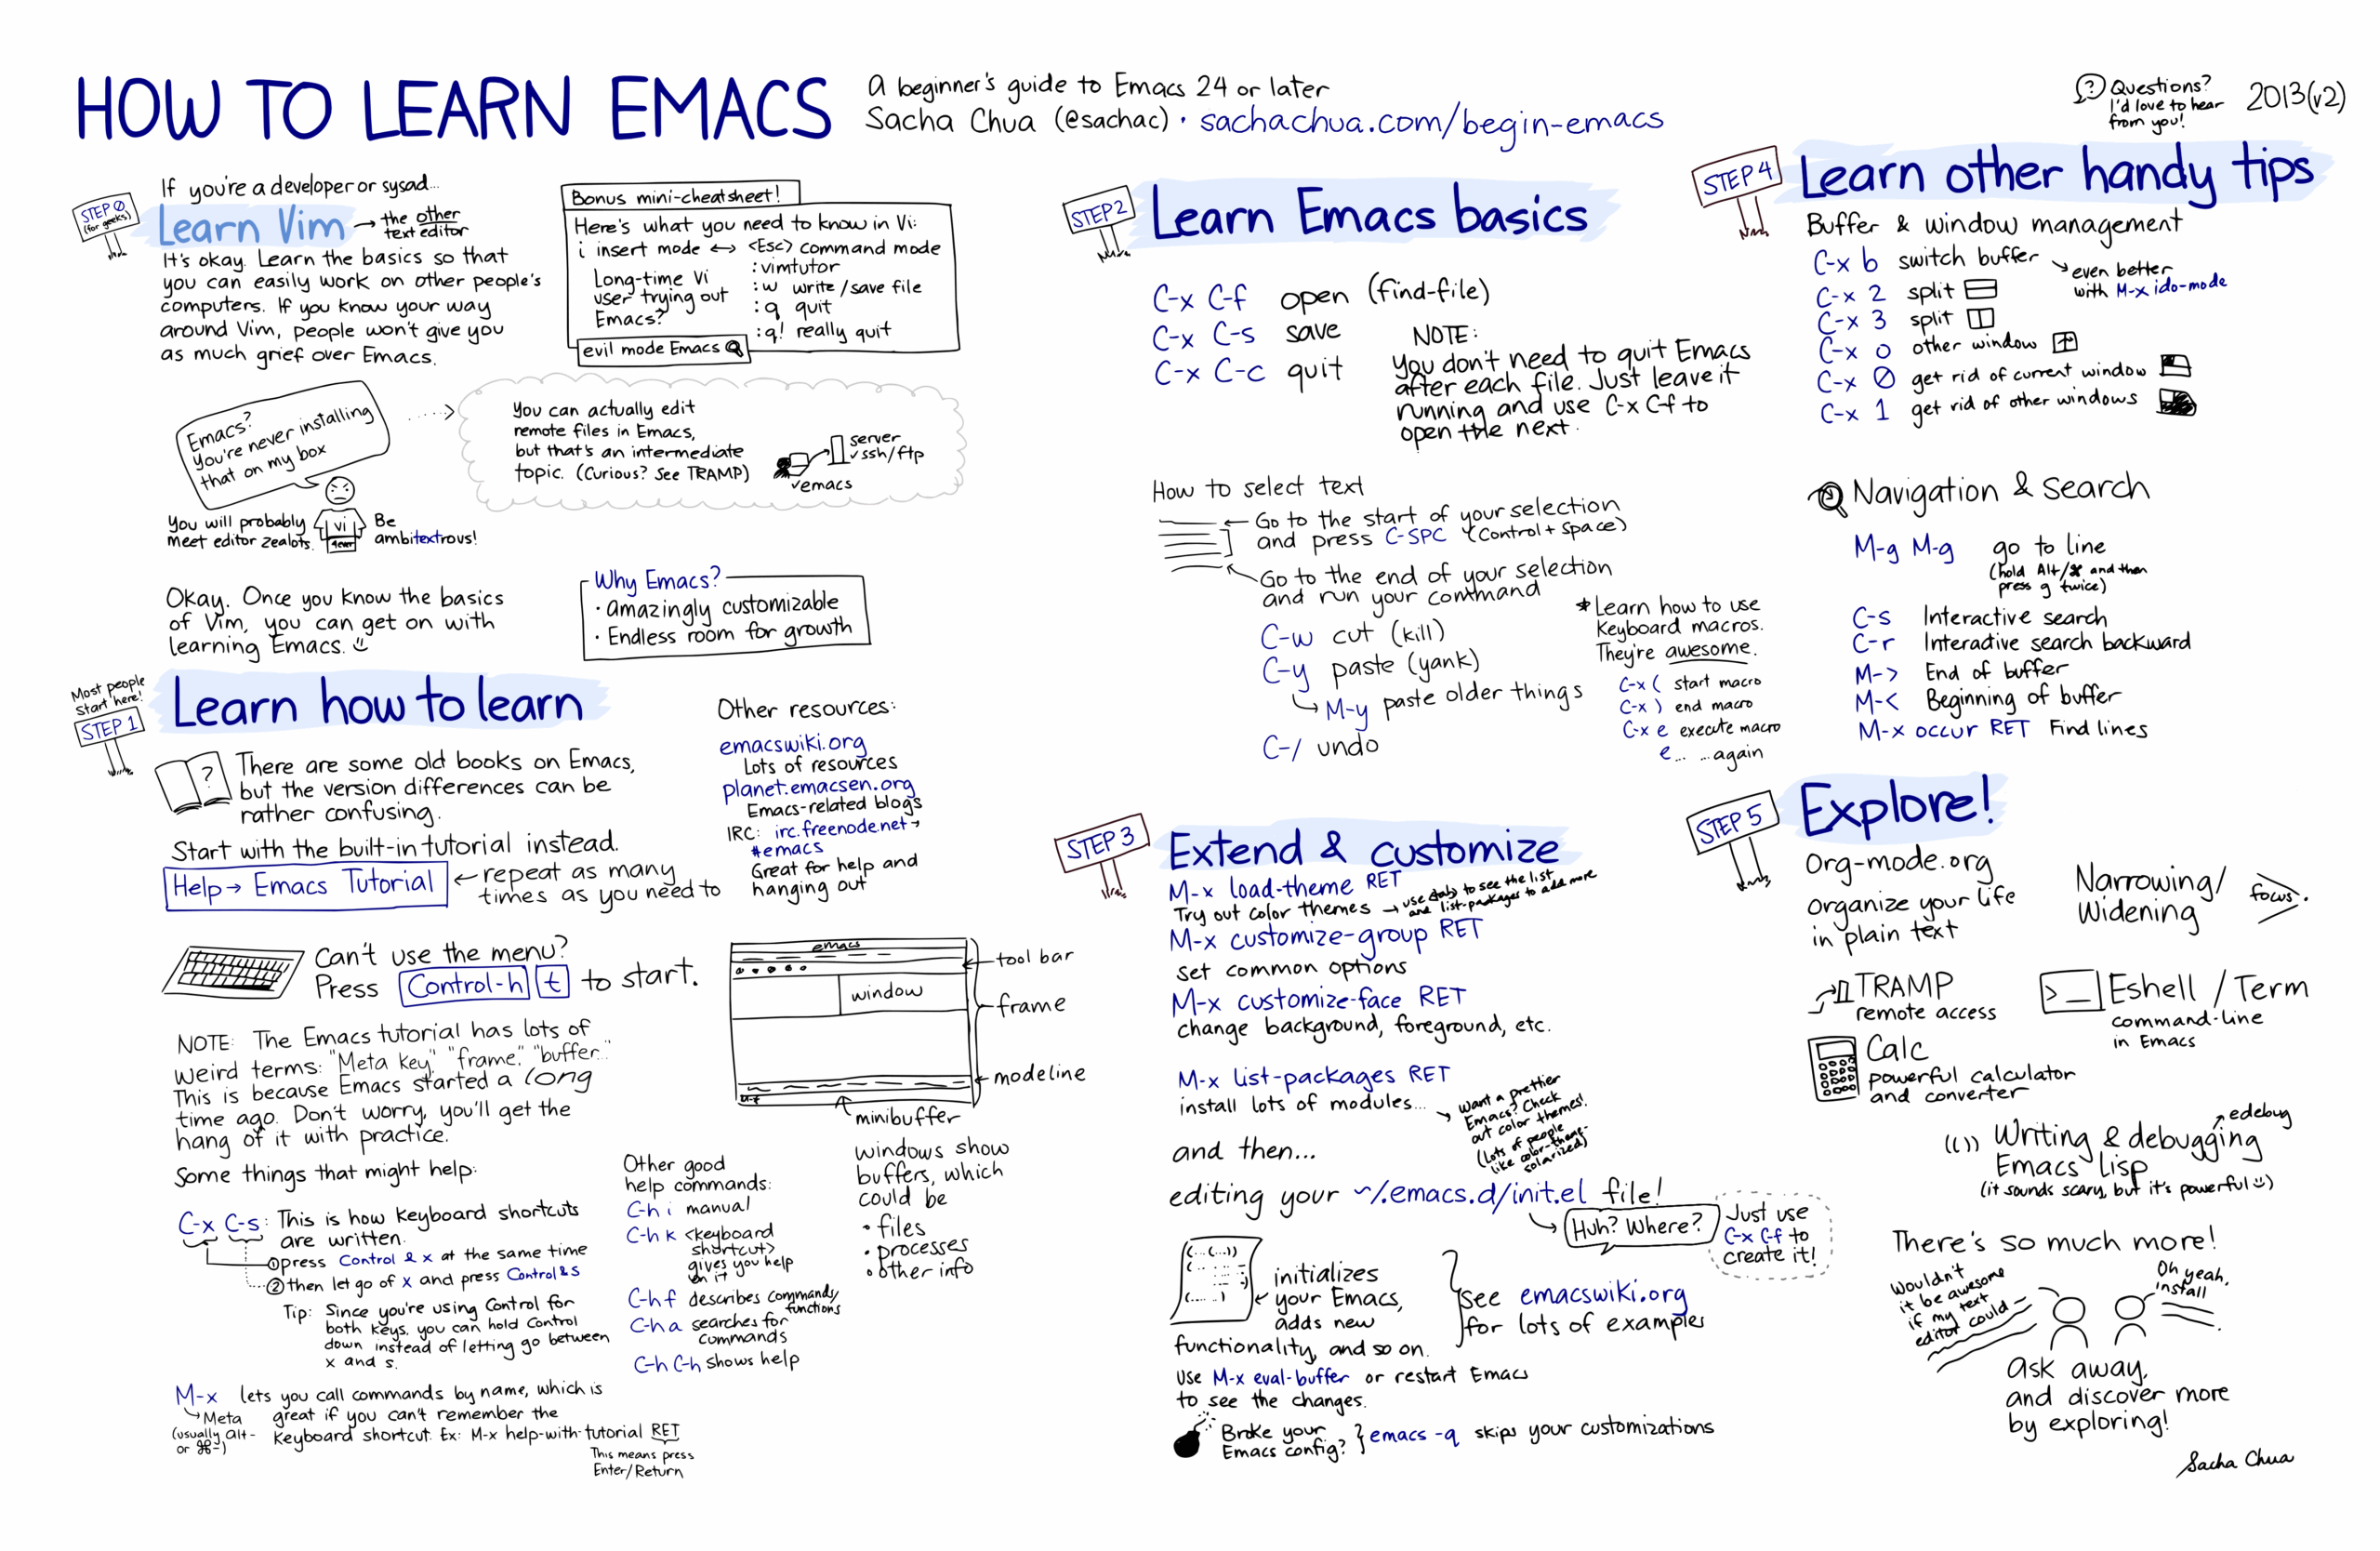 HOW TO LEARN EMACS
A beginner's guide to Emacs 24 or later
Sacha Chua (@sachac) · sachachua.com/begin-emacs
?
Questions?
I'd love to hear
from you!
2013(v2)
STEP 0
(for geeks)
If you're a developer or sysad...
Learn Vim → the other
text editor
It's okay. Learn the basics so that
you can easily work on other people's
computers. If you know your way
around Vim, people won't give you
as much grief over Emacs.
Bonus mini-cheatsheet!
Here's what you need to know in Vi:
i insert mode ↔ <Esc> command mode
:vimtutor
:w write/save file
:q quit
:q! really quit
Long-time Vi
user trying out
Emacs?
evil mode Emacs
Emacs?
You're never installing
that on my box
You will probably
meet editor zealots.
vi
4ever
Be
ambitextrous!
You can actually edit
remote files in Emacs,
but that's an intermediate
topic. (Curious? See TRAMP)
server
ssh/ftp
emacs
Okay. Once you know the basics
of Vim, you can get on with
learning Emacs.
Why Emacs?
· amazingly customizable
· Endless room for growth
Most people
start here!
STEP 1
Learn how to learn
?
There are some old books on Emacs,
but the version differences can be
rather confusing.
Start with the built-in tutorial instead.
Help → Emacs Tutorial ← repeat as many
times as you need to
Other resources:
emacswiki.org
Lots of resources
planet.emacsen.org
Emacs-related blogs
IRC: irc.freenode.net →
#emacs
Great for help and
hanging out
Can't use the menu?
Press Control-h t to start.
NOTE: The Emacs tutorial has lots of
weird terms: "Meta key," "frame," "buffer..."
This is because Emacs started a long
time ago. Don't worry, you'll get the
hang of it with practice.
emacs
window
M-x
tool bar
frame
modeline
minibuffer
windows show
buffers, which
could be
· files
· processes
· other info
Some things that might help:
C-x C-s: This is how keyboard shortcuts
are written.
① press Control & x at the same time
② then let go of x and press Control & s
Tip: Since you're using Control for
both keys, you can hold Control
down instead of letting go between
x and s.
M-x lets you call commands by name, which is
great if you can't remember the
keyboard shortcut. Ex: M-x help-with-tutorial RET
Meta
(usually alt-
or ⌘-)
This means press
Enter/Return
Other good
help commands:
C-h i manual
C-h k <keyboard
shortcut>
gives you help
on it
C-h f describes commands/
functions
C-h a searches for
commands
C-h C-h shows help
STEP 2
Learn Emacs basics
C-x C-f open (find-file)
C-x C-s save
C-x C-c quit
NOTE:
You don't need to quit Emacs
after each file. Just leave it
running and use C-x C-f to
open the next.
How to select text
Go to the start of your selection
and press C-SPC (Control + Space)
Go to the end of your selection
and run your command
C-w cut (kill)
C-y paste (yank)
M-y paste older things
C-/ undo
* Learn how to use
keyboard macros.
They're awesome.
C-x ( start macro
C-x ) end macro
C-x e execute macro
e... ...again
STEP 3
Extend & customize
M-x load-theme RET
Try out color themes → use <tab> to see the list
and list-packages to add more
M-x customize-group RET
set common options
M-x customize-face RET
change background, foreground, etc.
M-x list-packages RET
install lots of modules...
Want a prettier
Emacs? Check
out color themes!
(Lots of people
like color-theme-
solarized)
and then...
editing your ~/.emacs.d/init.el file!
Huh? Where?
Just use
C-x C-f to
create it!
initializes
your Emacs,
adds new
functionality, and so on.
see emacswiki.org
for lots of examples
use M-x eval-buffer or restart Emacs
to see the changes.
Broke your
Emacs config? } emacs -q skips your customizations
STEP 4
Learn other handy tips
Buffer & window management
C-x b switch buffer
even better
with M-x ido-mode
C-x 2 split
C-x 3 split
C-x o other window
C-x 0 get rid of current window
C-x 1 get rid of other windows
Navigation & Search
M-g M-g go to line
(hold Alt/⌘ and then
press g twice)
C-s Interactive search
C-r Interactive search backward
M-> End of buffer
M-< Beginning of buffer
M-x occur RET Find lines
STEP 5
Explore!
Org-mode.org
organize your life
in plain text
Narrowing/
Widening
focus.
TRAMP
remote access
>_ Eshell / Term
command-line
in Emacs
Calc
powerful calculator
and converter
(()) Writing & debugging
Emacs Lisp
edebug
(it sounds scary, but it's powerful)
There's so much more!
Wouldn't
it be awesome
if my text
editor could
Oh yeah,
install
ask away,
and discover more
by exploring!
Sacha Chua